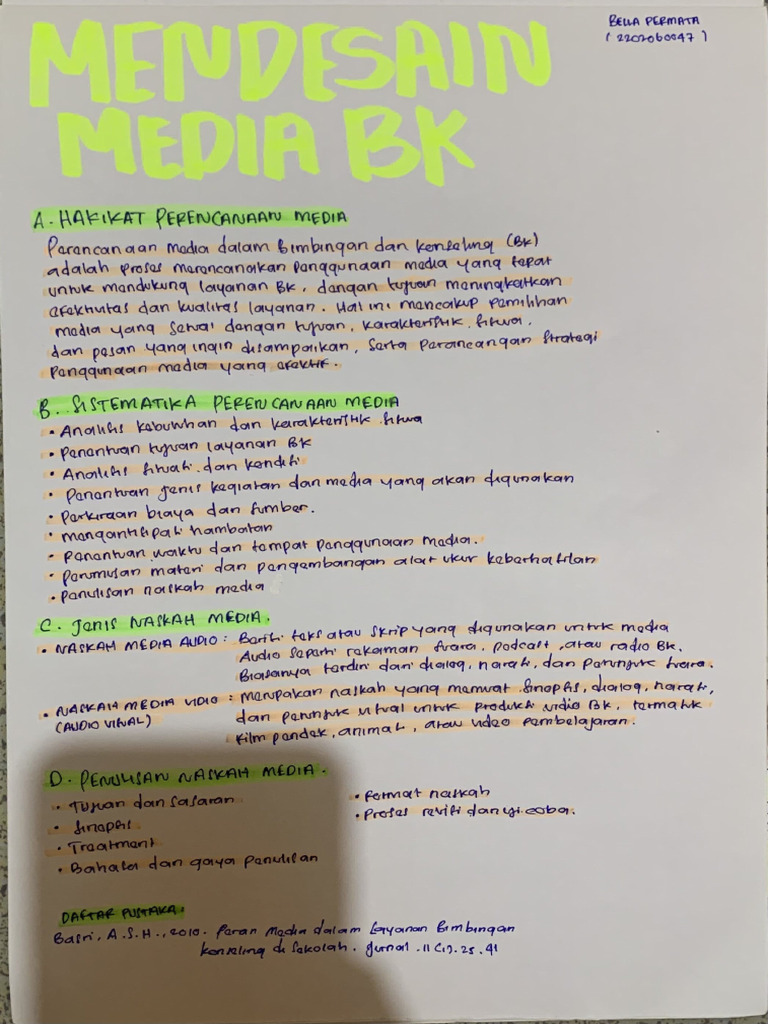 MENDESAIN
MEDIA BK
BELLA PERMATA
(2202060047)
A. HAKIKAT PERENCANAAN MEDIA
Perancanaan media dalam Bimbingan dan konseling (BK)
adalah proses merencanakan penggunaan media yang tepat
untuk mendukung layanan BK, dengan tujuan meningkatkan
efektivitas dan kualitas layanan. Hal ini mencakup pemilihan
media yang sesuai dengan tujuan, karakteristik siswa,
dan pesan yang ingin disampaikan, serta perancangan strategi
penggunaan media yang efektif.
B. SISTEMATIKA PERENCANAAN MEDIA
• Analisis kebutuhan dan karakteristik siswa
• Penentuan tujuan layanan BK
• Analisis situasi dan kondisi
• Penentuan jenis kegiatan dan media yang akan digunakan
• Perkiraan biaya dan sumber.
• mengantisipasi hambatan
• penentuan waktu dan tempat penggunaan media.
• perumusan materi dan pengembangan alat ukur keberhasilan
• penulisan naskah media
C. Jenis NASKAH MEDIA.
• NASKAH MEDIA AUDIO : Berisi teks atau skrip yang digunakan untuk media
Audio seperti rekaman suara, podcast, atau radio BK.
Biasanya terdiri dari dialog, narasi, dan petunjuk suara.
• NASKAH MEDIA VIDIO : merupakan naskah yang memuat sinopsis, dialog, narasi,
(AUDIO VISUAL) dan petunjuk visual untuk produksi vidio BK, termasuk
film pendek, animasi, atau video pembelajaran.
D. PENULISAN NASKAH MEDIA.
• Tujuan dan sasaran
• Sinopsis
• Treatment
• Bahasa dan gaya penulisan
• Format naskah
• Proses revisi dan uji coba.
DAFTAR PUSTAKA:
Basri, A.S.H., 2010. Peran Media dalam Layanan Bimbingan
konseling di sekolah. Jurnal. 11 (1). 25. 41